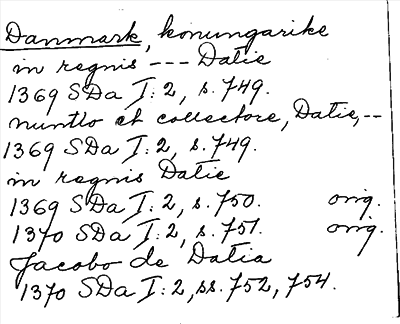 Danmark, konungarike
in regnis --- Datie
1369 SDa I:2, s.749.
nuntio et collectore, Datie, --
1369 SDa I:2, s.749.
in regnis Datie
1369 SDa I:2, s.750. orig.
1370 SDa I:2, s.751. orig.
Jacobo de Datia
1370 SDa I:2, ss.752, 754.